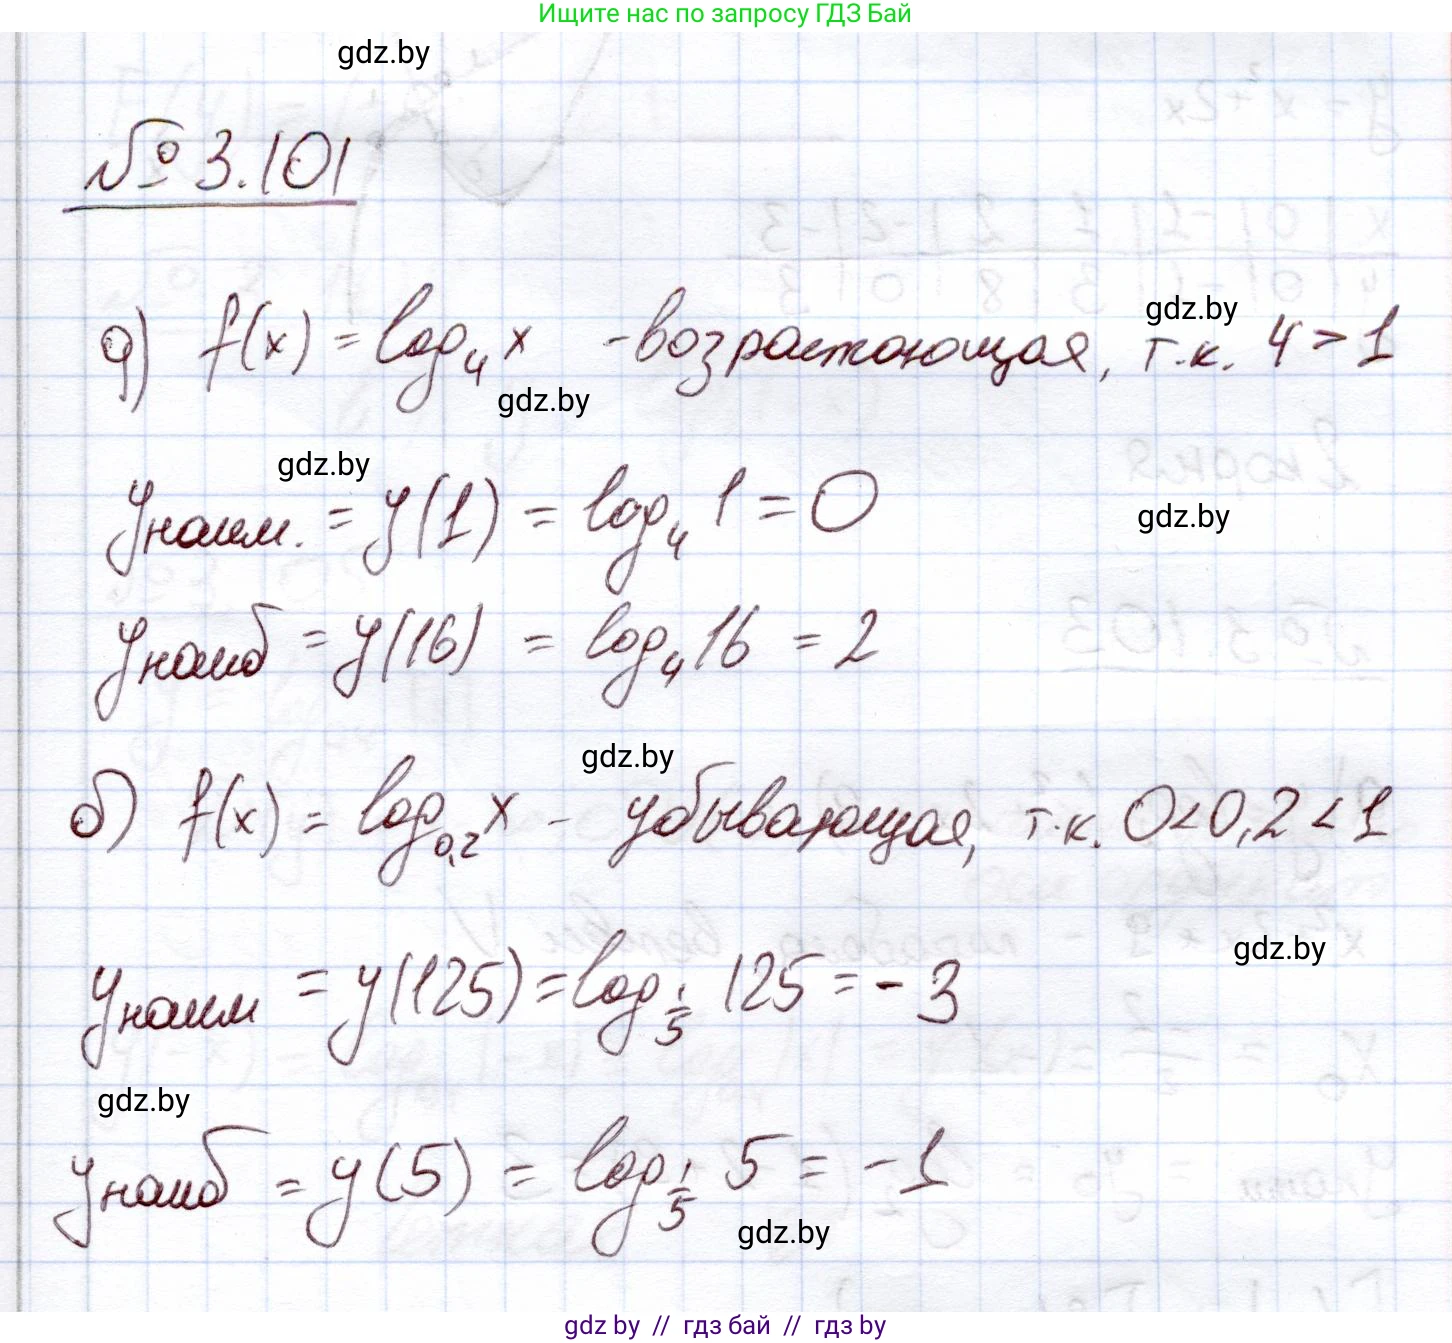 Ищите нас по запросу ГДЗ Бай
gdz.by
№ 3.101
gdz.by
а) f(x) = log₄ x - возрастающая, т.к. 4 > 1
gdz.by
gdz.by
yнаим. = y(1) = log₄ 1 = 0
gdz.by
yнаиб = y(16) = log₄ 16 = 2
gdz.by
б) f(x) = log₀,₂ x - убывающая, т.к. 0 < 0,2 < 1
gdz.by
yнаим = y(125) = log_{1/5} 125 = - 3
gdz.by
yнаиб = y(5) = log_{1/5} 5 = - 1
gdz.by
gdz by // гдз бай // гдз by